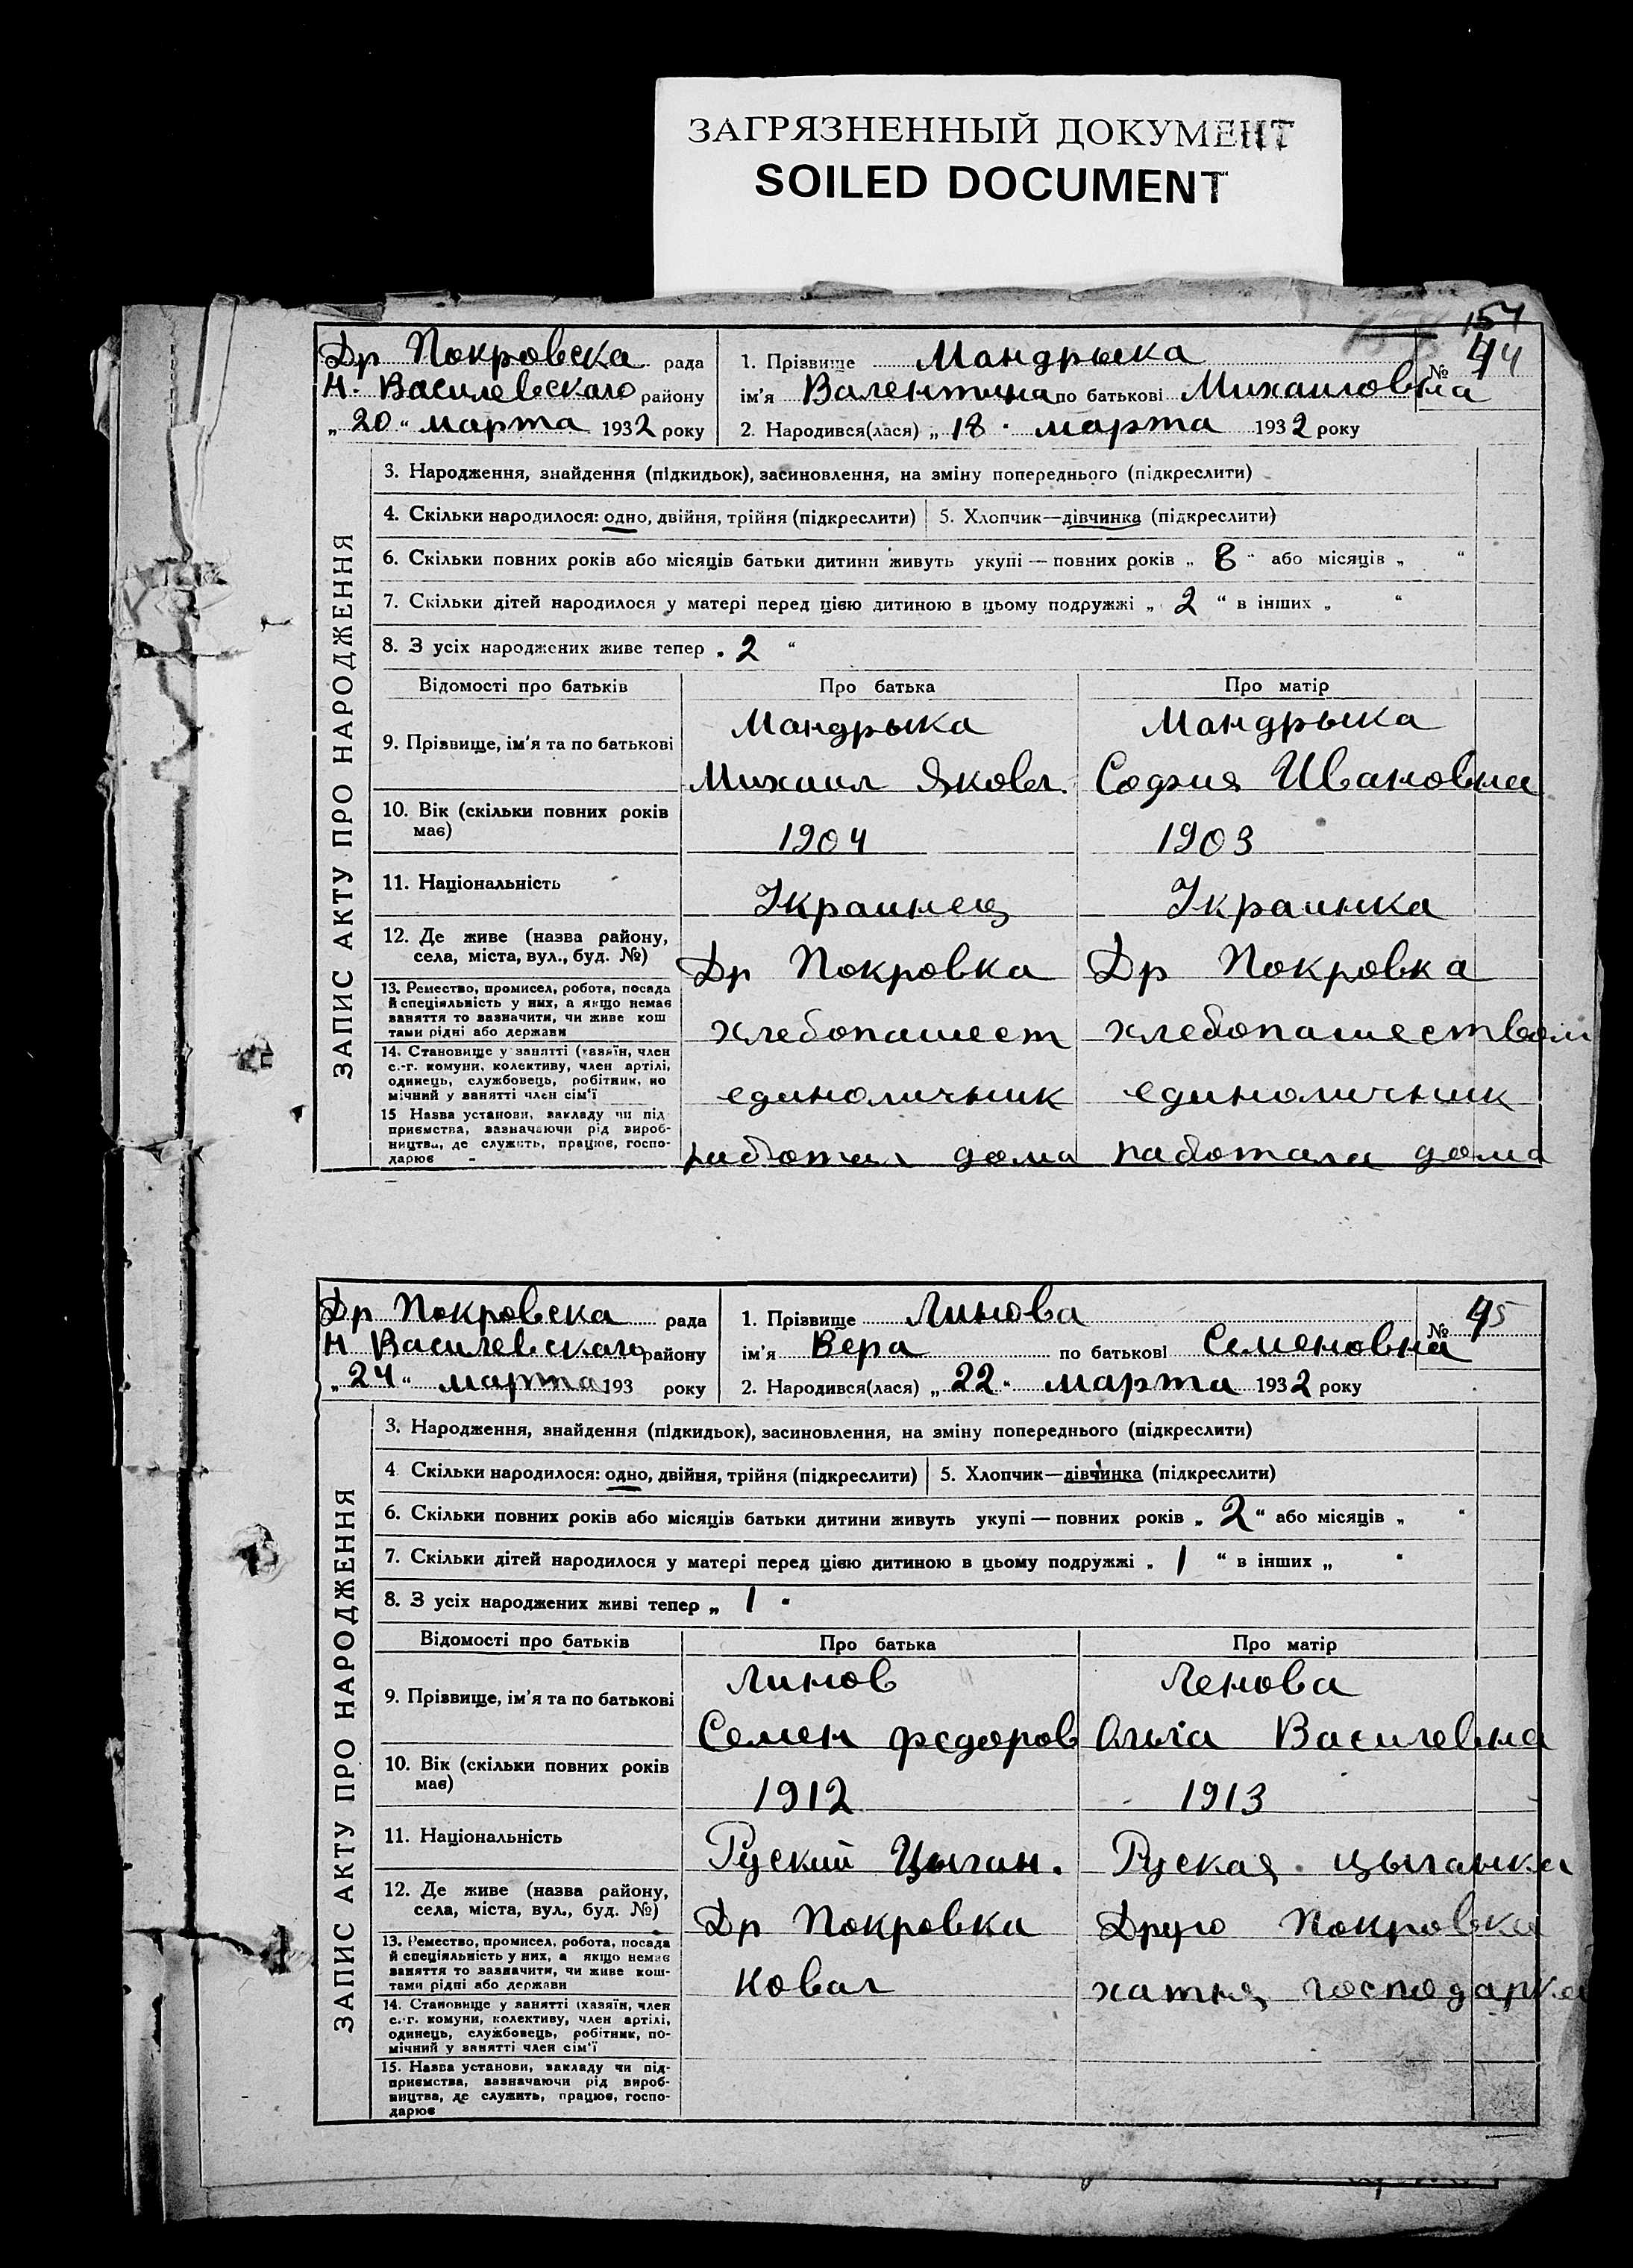 ЗАГРЯЗНЕННЫЙ ДОКУМЕНТ
SOILED DOCUMENT
154
Др Покровска рада
Н. Василевскаго району
„ 20 “ марта 1932 року
1. Прізвище Мандрыка
№ 44
ім'я Валентина по батькові Михаиловна
2. Народився(лася) „ 18 “ марта 1932 року
ЗАПИС АКТУ ПРО НАРОДЖЕННЯ
3. Народження, знайдення (підкидьок), засиновлення, на зміну попереднього (підкреслити)
4. Скільки народилося: одно, двійня, трійня (підкреслити) 5. Хлопчик—дівчинка (підкреслити)
6. Скільки повних років або місяців батьки дитини живуть укупі — повних років „ 8 “ або місяців „ “
7. Скільки дітей народилося у матері перед цією дитиною в цьому подружжі „ 2 “ в інших „ “
8. З усіх народжених живе тепер „ 2 “
Відомості про батьків Про батька Про матір
9. Прізвище, ім'я та по батькові
Мандрыка
Михаил Яковл.
Мандрыка
София Ивановна
10. Вік (скільки повних років
має)
1904 1903
11. Національність Украинец Украинка
12. Де живе (назва району,
села, міста, вул., буд. №)
Др Покровка Др Покровка
13. Ремество, промисел, робота, посада
й спеціяльність у них, а якщо немає
заняття то зазначити, чи живе кош
тами рідні або держави
хлебопашест хлебопашеством
14. Становище у занятті (хазяїн, член
с.-г. комуни, колективу, член артілі,
одинець, службовець, робітник, по
мічний у занятті член сім'ї
единоличник единоличник
15 Назва установи, закладу чи під
приємства, зазначаючи рід вироб-
ництва, де служить, працює, госпо-
дарює
работал дома работала дома
Др Покровска рада
Н Василевскаго району
„ 24 “ марта 193 року
1. Прізвище Линова
№ 45
ім'я Вера по батькові Семеновна
2. Народився(лася) „ 22 “ марта 1932 року
ЗАПИС АКТУ ПРО НАРОДЖЕННЯ
3. Народження, знайдення (підкидьок), засиновлення, на зміну попереднього (підкреслити)
4 Скільки народилося: одно, двійня, трійня (підкреслити) 5. Хлопчик—дівчинка (підкреслити)
6. Скільки повних років або місяців батьки дитини живуть укупі — повних років „ 2 “ або місяців „ “
7. Скільки дітей народилося у матері перед цією дитиною в цьому подружжі „ 1 “ в інших „ “
8. З усіх народжених живі тепер „ 1 “
Відомості про батьків Про батька Про матір
9. Прізвище, ім'я та по батькові
Линов
Семен федоров
Ленова
Ольга Василевна
10. Вік (скільки повних років
має)
1912 1913
11. Національність Руский Цыган. Руская цыганка
12. Де живе (назва району,
села, міста, вул., буд. №)
Др Покровка Друго Покровка
13. Ремество, промисел, робота, посада
й спеціяльність у них, а якщо немає
заняття то зазначити, чи живе кош-
тами рідні або держави
Ковал хатня господарка
14. Становище у занятті (хазяїн, член
с.-г. комуни, колективу, член артілі,
одинець, службовець, робітник, по-
мічний у занятті член сім'ї
15. Назва установи, закладу чи під-
приємства, зазначаючи рід вироб-
ництва, де служить, працює, госпо-
дарює